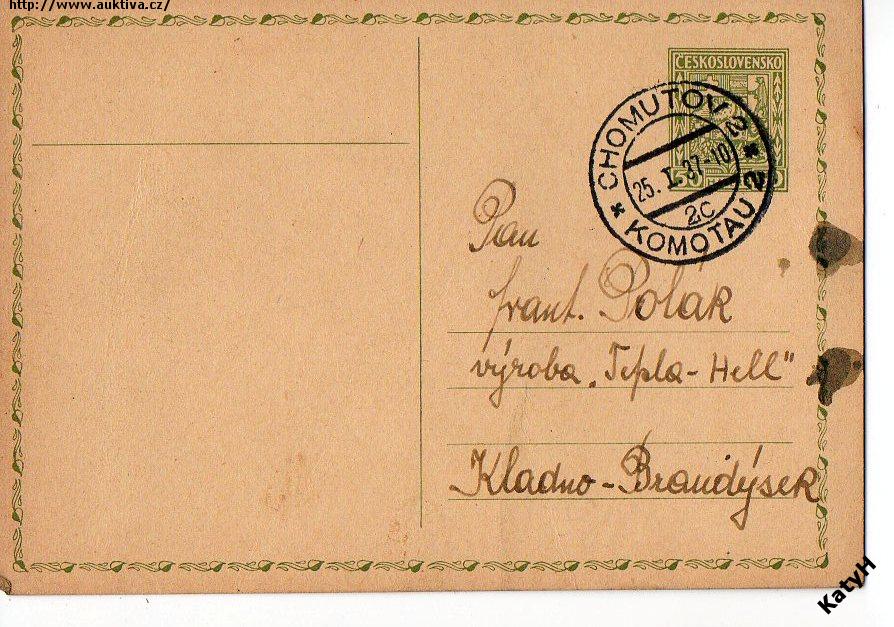 http://www.auktiva.cz/
ČESKOSLOVENSKO
50
CHOMUTOV 2
25. I. 37-10
2c
* KOMOTAU 2 *
Pan
frant. Polák
výroba „Tepla-Hell"
Kladno-Brandýsek
KatyH